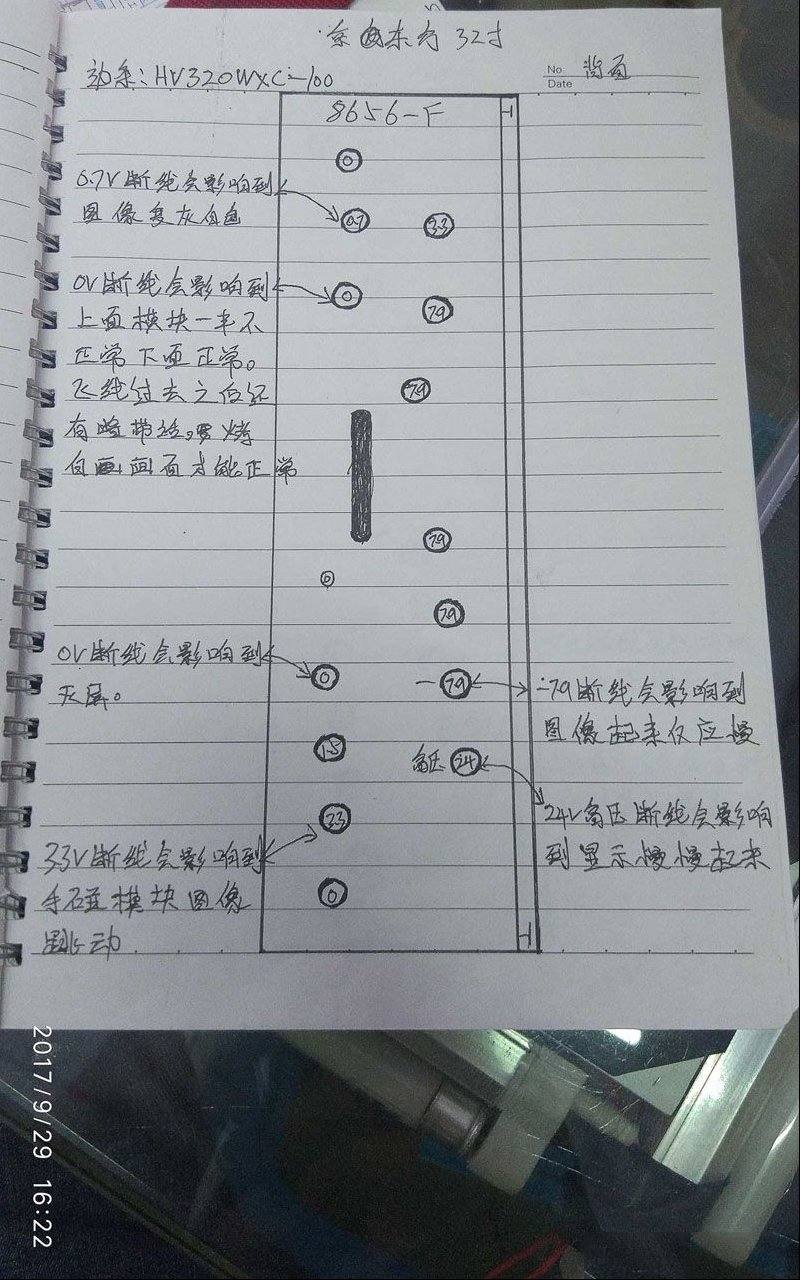 京东方 32寸
No.
Date
背面
HV320WXC-100
8656-F
0
0.7V断线会影响到
图像变灰白色
0.7
3.3
0V断线会影响到
上面模块一半不
正常下面正常。
飞线过去之后还
有 带 要烤
白画面才能正常
0
79
79
79
0
79
0V断线会影响到
灰屏。
0
-79
-79断线会影响到
图像起来反应慢
1.5
高压 24
24V高压断线会影响
到显示慢慢起来
3.3
33V断线会影响到
手碰模块图像
跳动
0
2017/9/29 16:22